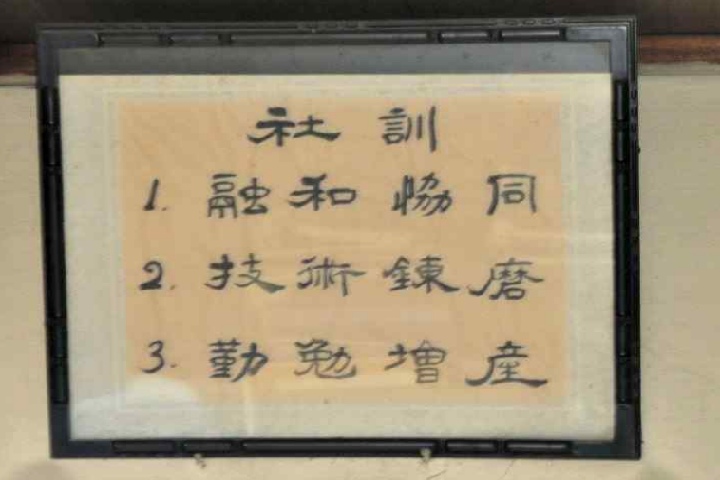 社訓
1. 融和恊同
2. 技術錬磨
3. 勤勉増産